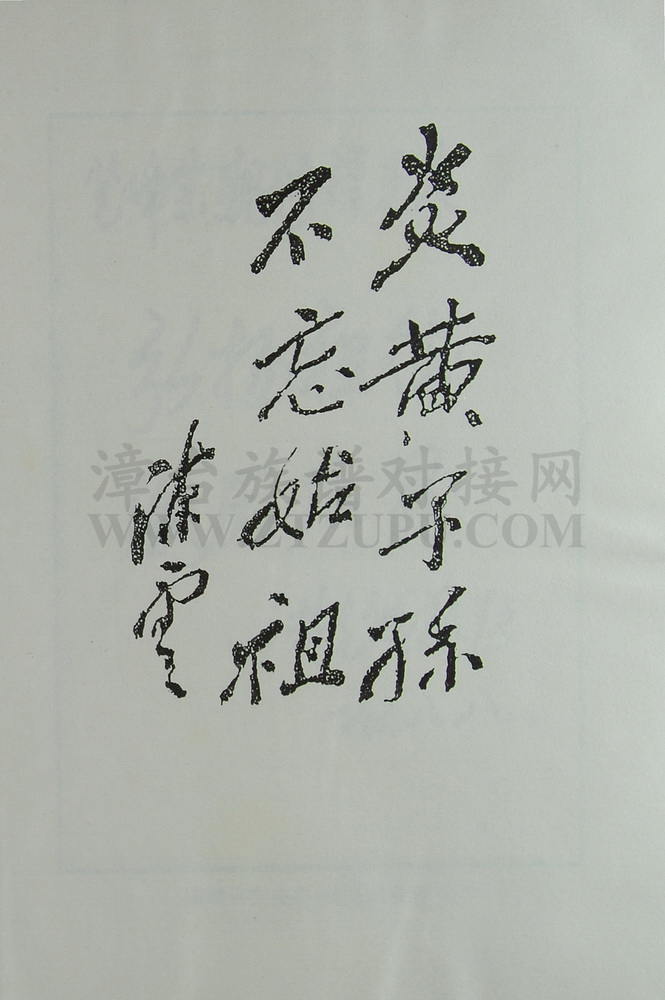 炎黄子孙
不忘始祖
陈云
漳台族谱对接网
WWW.ZTZUPU.COM